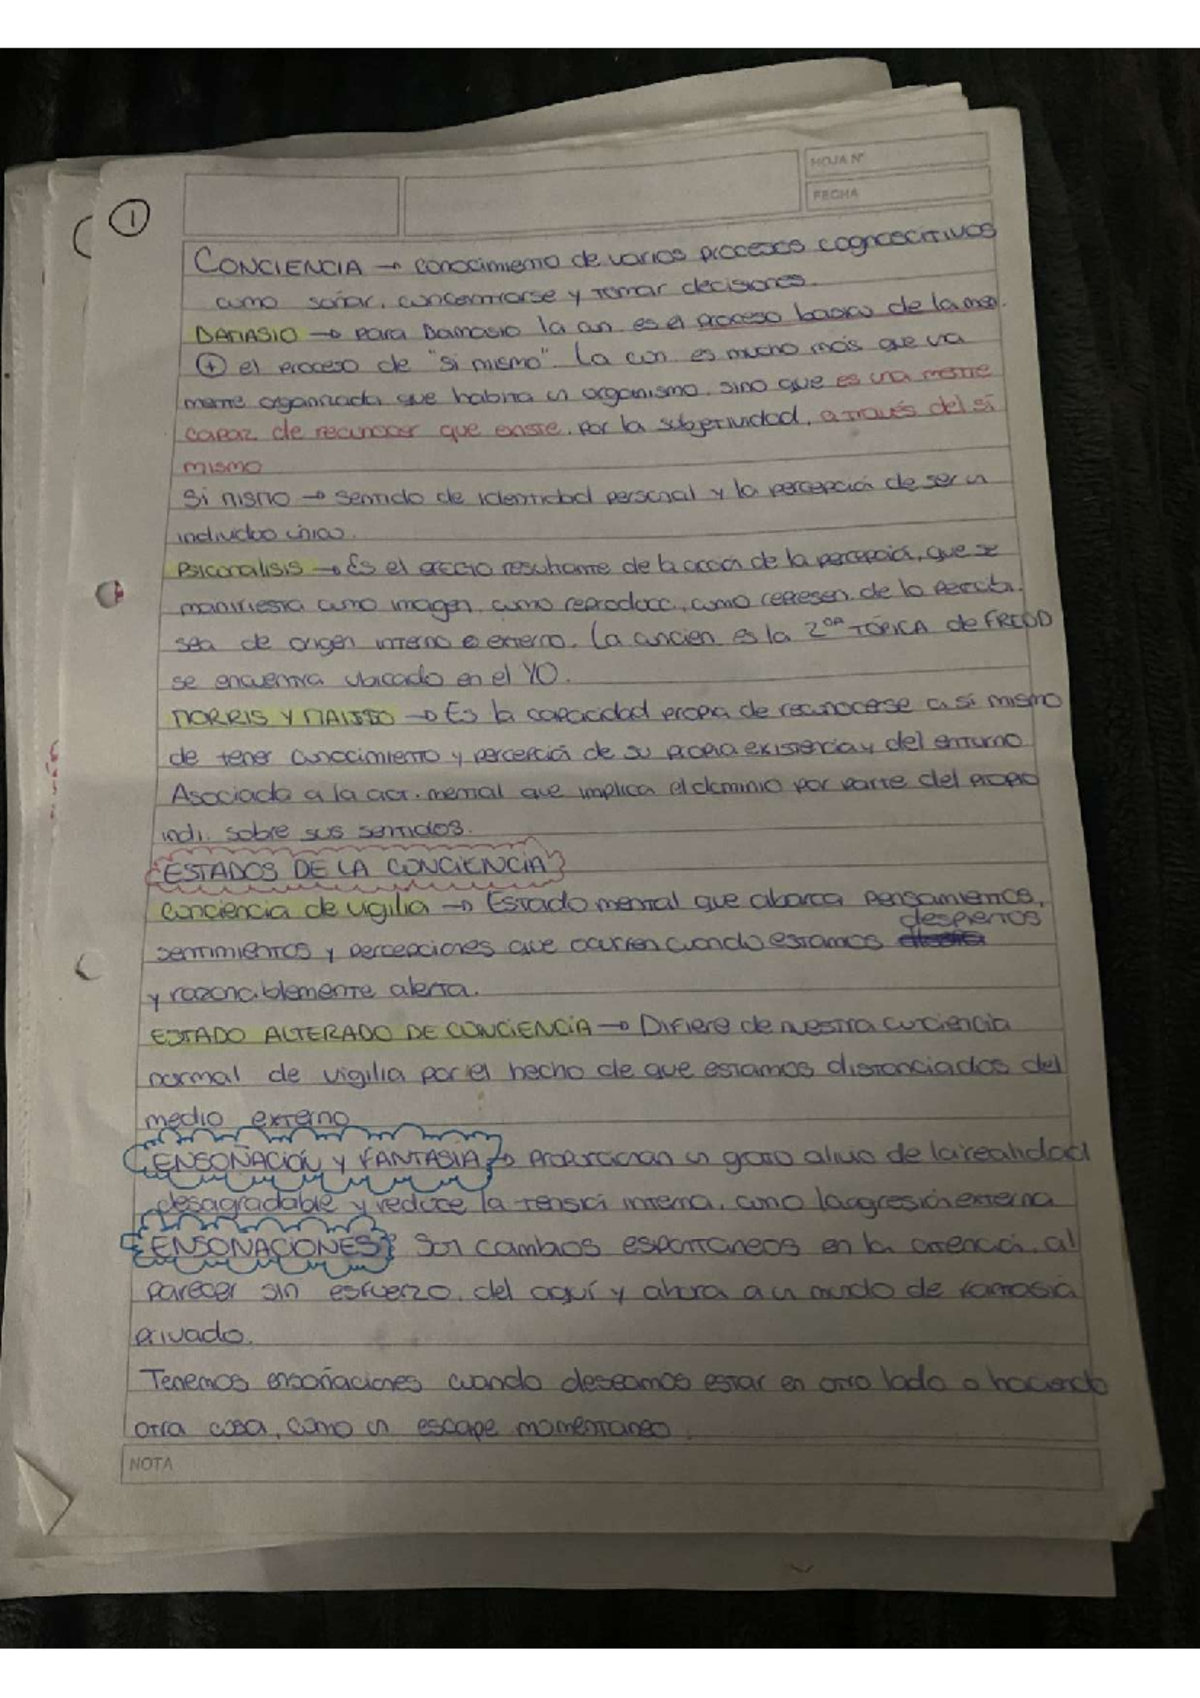 HOJA N°
FECHA
1
CONCIENCIA → conocimiento de varios procesos cognoscitivos
como soñar, concentrarse y tomar decisiones.
DAMASIO → para Damasio la con. es el proceso basico de la men.
+ el proceso de "si mismo". La con es mucho más que una
mente organizada que habita un organismo, sino que es una mente
capaz de reconocer que existe, por la subjetividad, a través del sí
mismo
Si mismo → sentido de identidad personal y la percepción de ser un
individuo único.
PSICONALISIS → Es el efecto resultante de la acción de la percepción, que se
manifiesta como imagen, como reproducc., como represen. de lo percibi.
sea de origen interno o externo. La concien es la 2DA TÓPICA de FREUD
se encuentra ubicado en el YO.
MORRIS Y MAISTO → Es la capacidad propia de reconocerse a sí mismo
de tener conocimiento y percepción de su propia existencia y del entorno
Asociada a la act. mental que implica el dominio por parte del propio
indi. sobre sus sentidos.
ESTADOS DE LA CONCIENCIA
Conciencia de vigilia → Estado mental que abarca pensamientos,
sentimientos y percepciones que ocurren cuando estamos despiertos
y razonablemente alerta.
ESTADO ALTERADO DE CONCIENCIA → Difiere de nuestra conciencia
normal de vigilia por el hecho de que estamos distanciados del
medio externo
ENSOÑACIÓN Y FANTASIA → proporcionan un grato alivio de la realidad
desagradable y reduce la tensión interna, como la agresión externa
ENSONACIONES: Son cambios espontaneos en la atención, al
parecer sin esfuerzo, del aquí y ahora a un mundo de fantasia
privado.
Tenemos ensoñaciones cuando deseamos estar en otro lado o haciendo
otra cosa, como un escape momentaneo.
NOTA